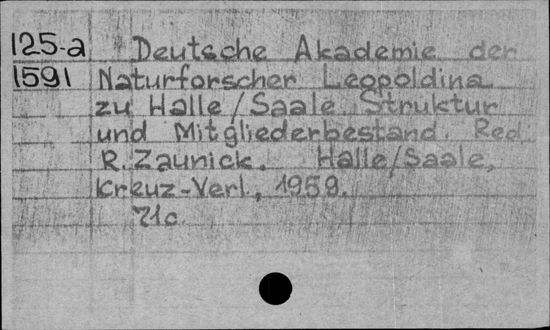 125-a Deutsche Akademie der
1591 Naturforscher Leopoldina
zu Halle/Saale. Struktur
und Mitgliederbestand. Red.
R. Zaunick. Halle/Saale,
Kreuz-Verl., 1959.
71c.